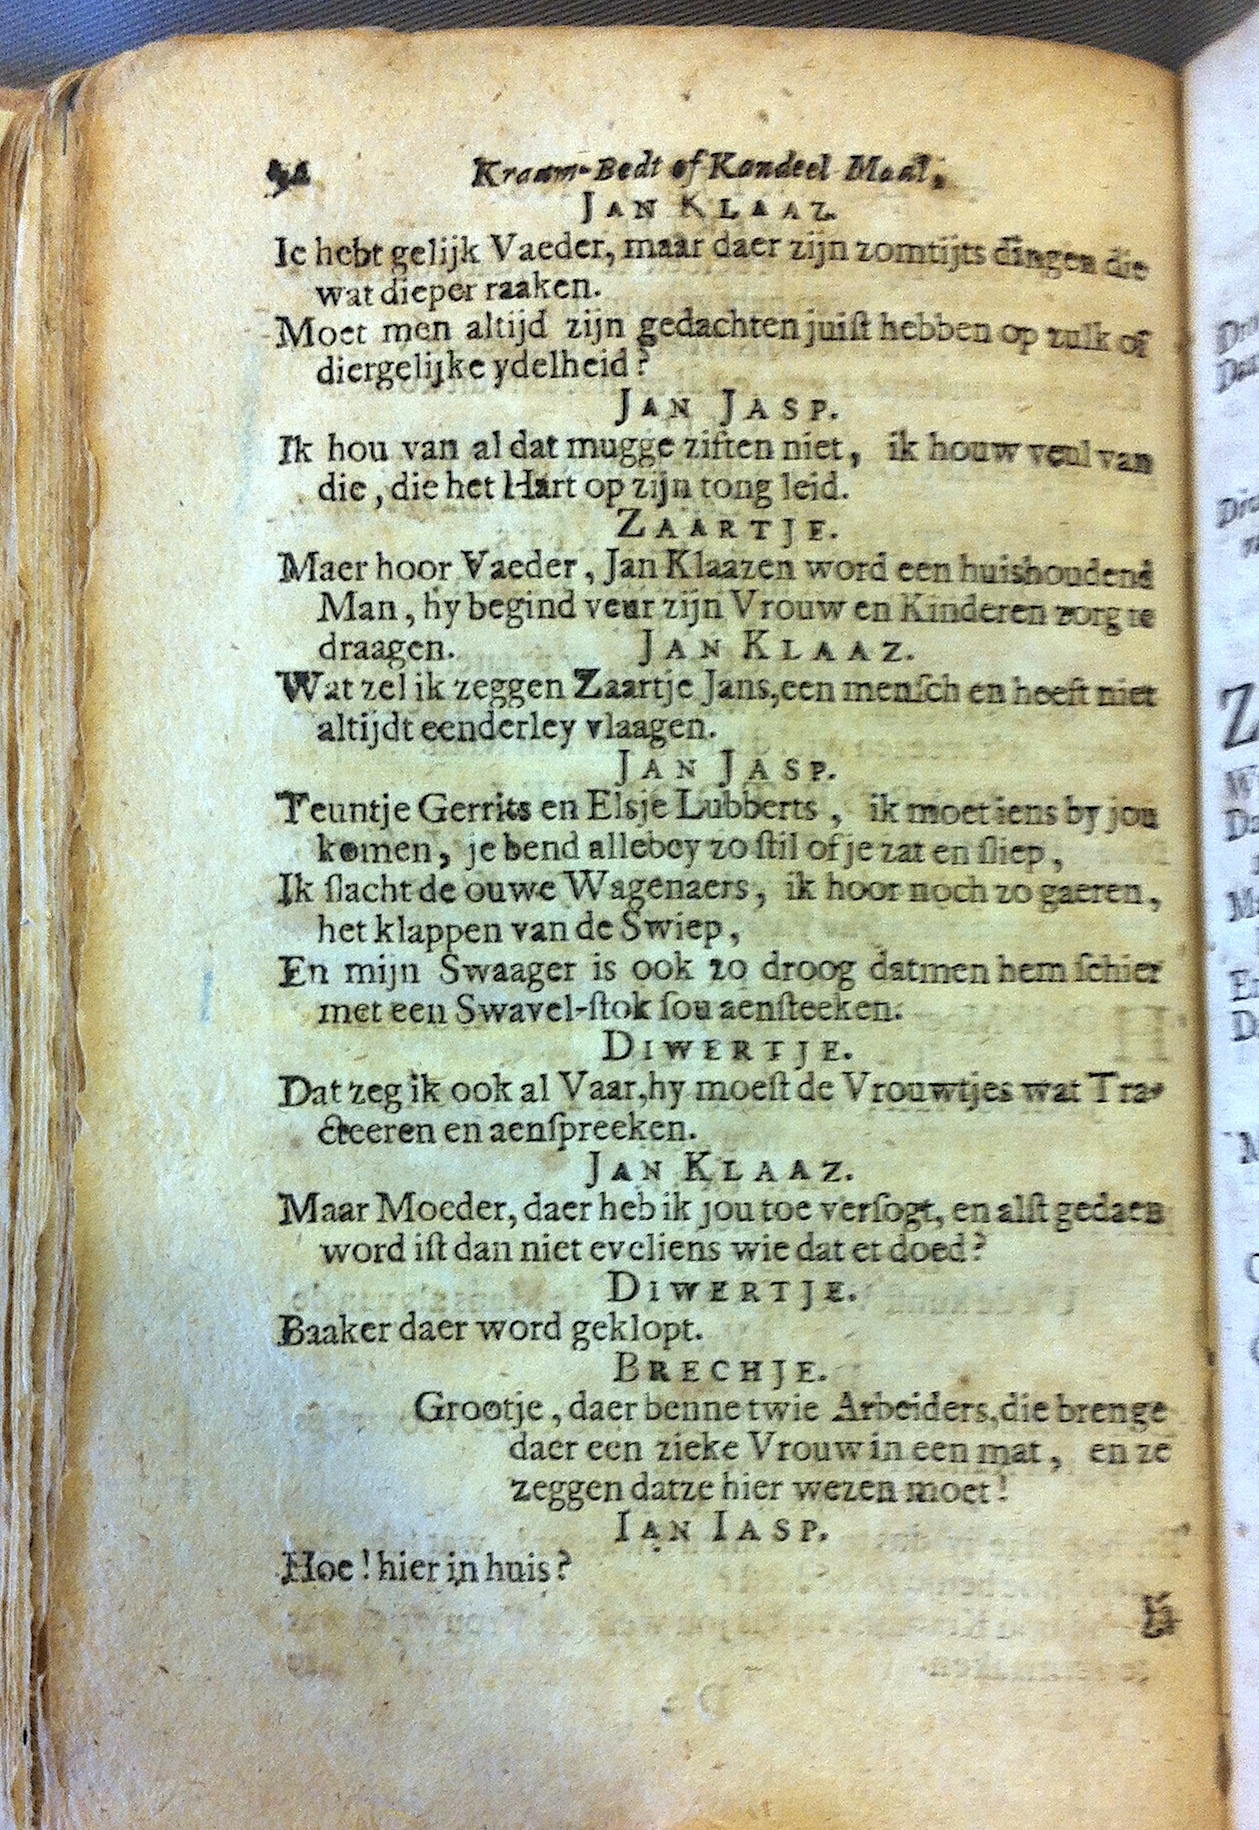 Kraam-Bedt of Kandeel Maal,
JAN KLAAZ.
Ie hebt gelijk Vaeder, maar daer zijn zomtijts dingen die
wat dieper raaken.
Moet men altijd zijn gedachten juiſt hebben op zulk of
diergelijke ydelheid?
JAN JASP.
Ik hou van al dat mugge ziften niet, ik houw veul van
die, die het Hart op zijn tong leid.
ZAARTJE.
Maer hoor Vaeder, Jan Klaazen word een huishoudend
Man, hy begind veur zijn Vrouw en Kinderen zorg te
draagen. JAN KLAAZ.
Wat zel ik zeggen Zaartje Jans, een menſch en heeft niet
altijdt eenderley vlaagen.
JAN JASP.
Teuntje Gerrits en Elsje Lubberts, ik moet iens by jou
komen, je bend allebey zo ſtil of je zat en ſliep,
Ik ſlacht de ouwe Wagenaers, ik hoor noch zo gaeren,
het klappen van de Swiep,
En mijn Swaager is ook zo droog datmen hem ſchier
met een Swavel-ſtok ſou aenſteeken.
DIWERTJE.
Dat zeg ik ook al Vaar, hy moeſt de Vrouwtjes wat Tra-
cteeren en aenſpreeken.
JAN KLAAZ.
Maar Moeder, daer heb ik jou toe verſogt, en alſt gedaen
word iſt dan niet eveliens wie dat et doed?
DIWERTJE.
Baaker daer word geklopt.
BRECHJE.
Grootje, daer benne twie Arbeiders, die brenge
daer een zieke Vrouw in een mat, en ze
zeggen datze hier wezen moet!
IAN IASP.
Hoe! hier in huis?